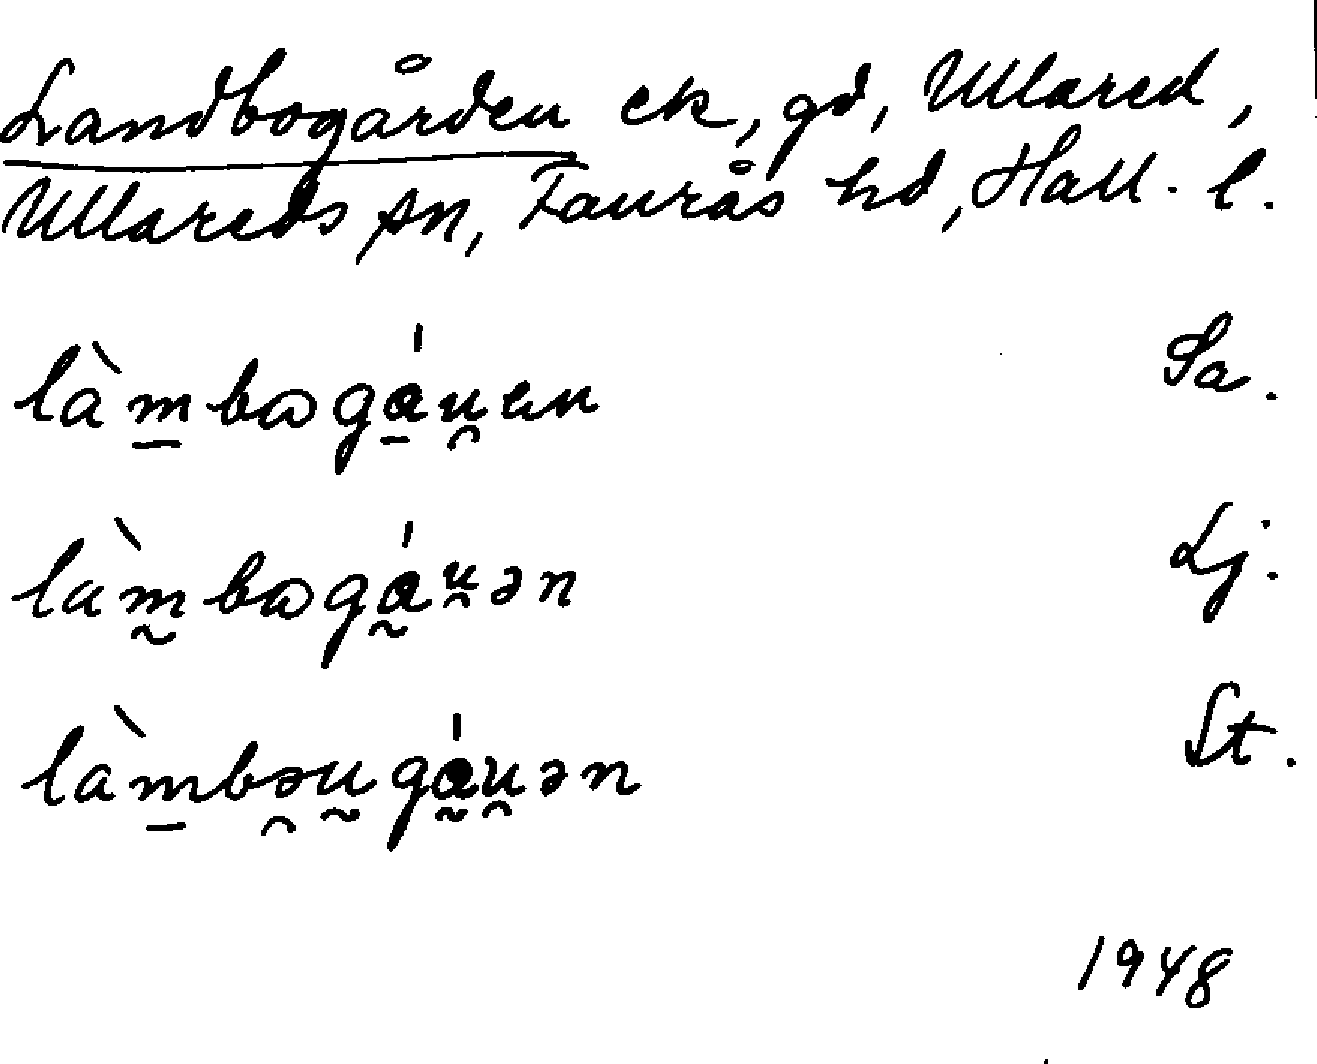 Landbogården ek, gd, Ullared,
Ullareds sn, Faurås hd, Hall. l.
làm̲bɷgá̲u̯en Sa.
làm̰bɷgá̰u̯ən Lj.
làm̲bə̯ṵgá̰u̯ən St.
1948